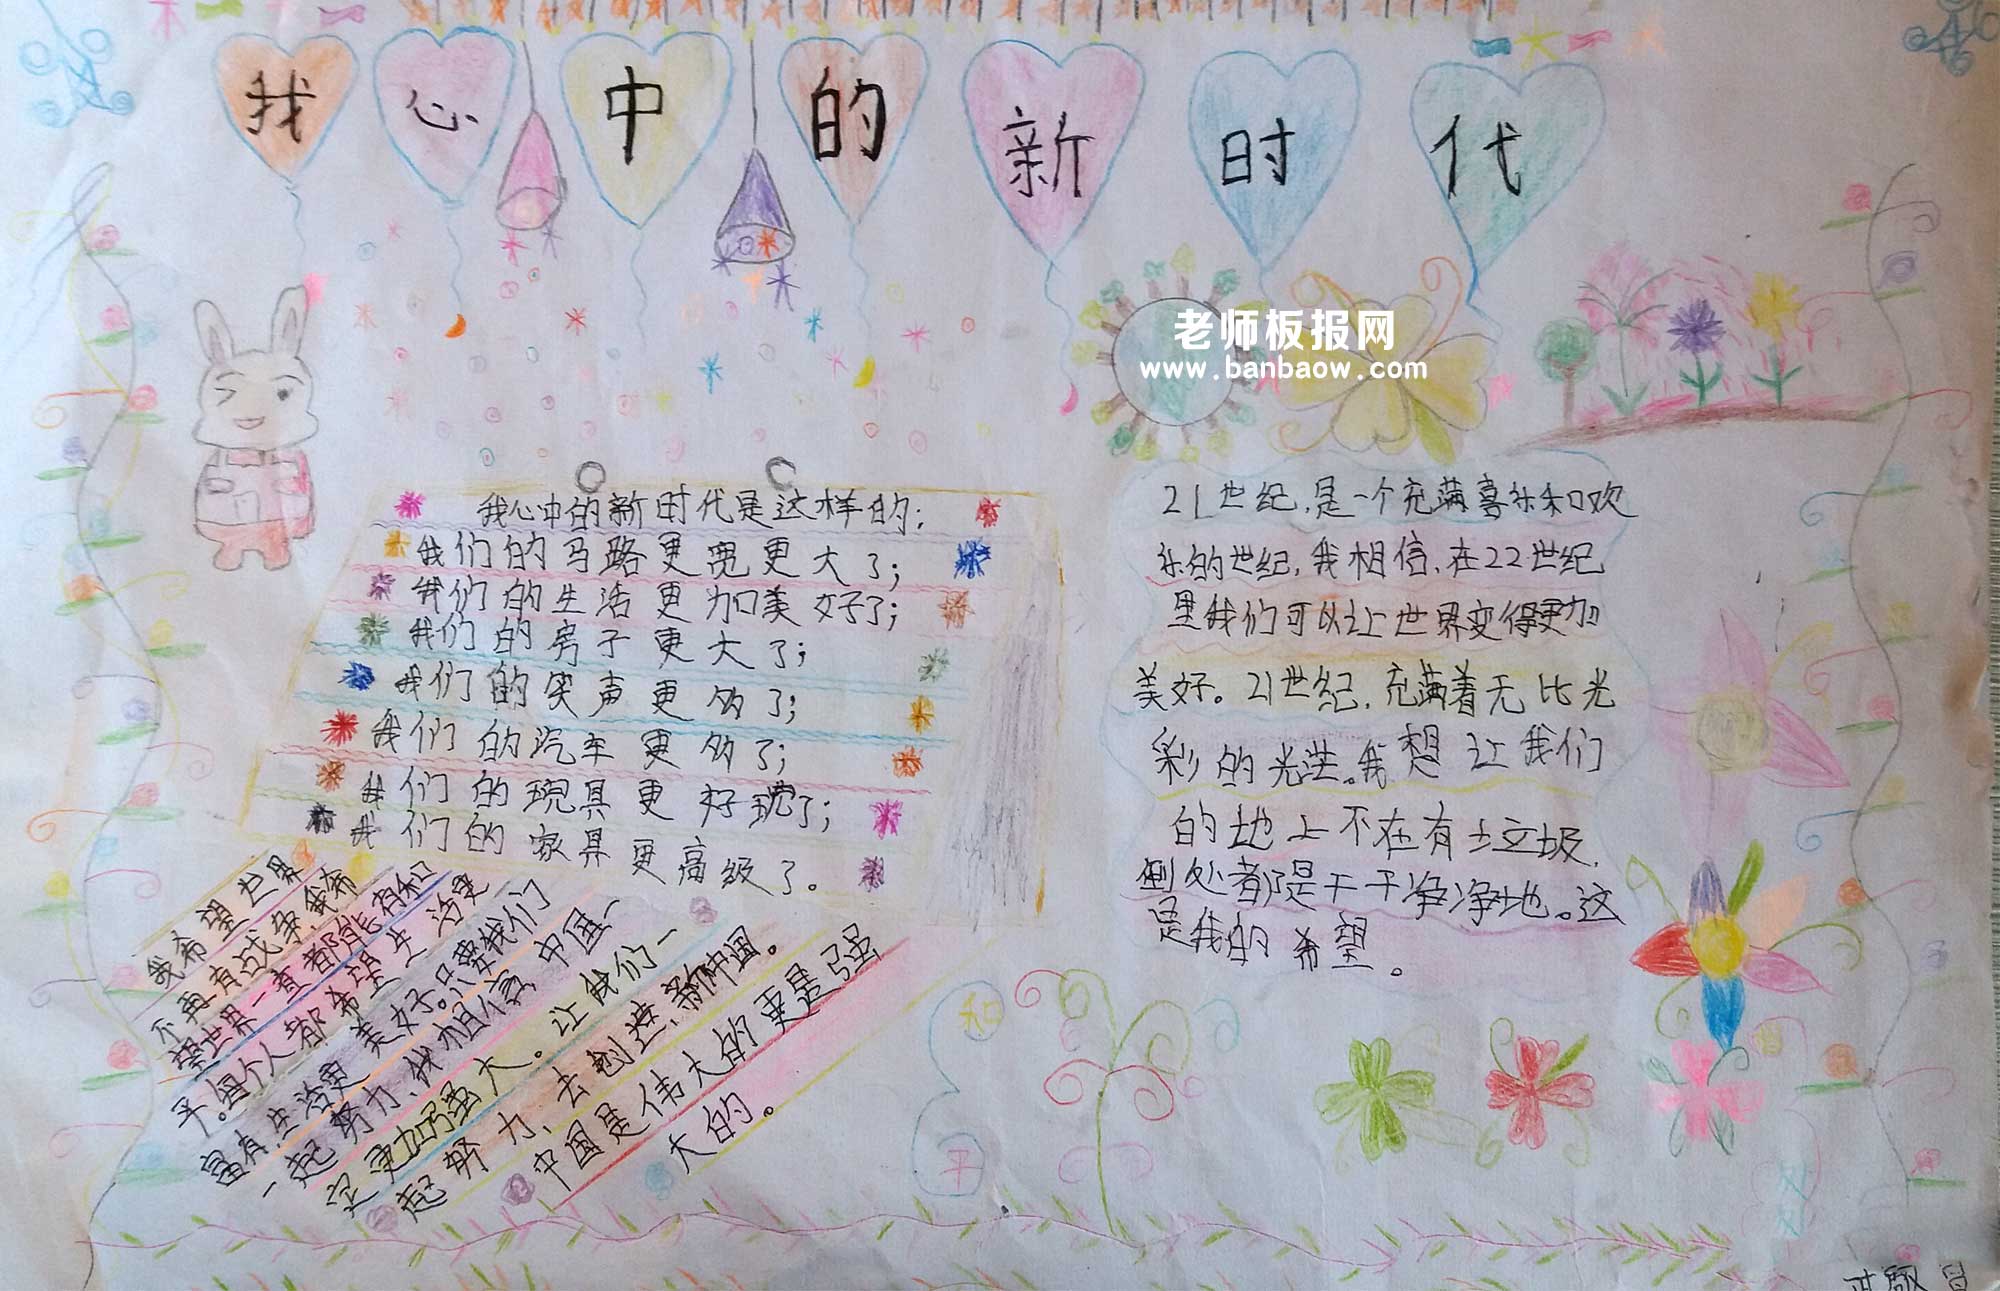 我心中的新时代
老师板报网
www.banbaow.com
我心中的新时代是这样的；
我们的马路更宽更大了；
我们的生活更加美好了；
我们的房子更大了；
我们的笑声更多了；
我们的汽车更多了；
我们的玩具更好玩了；
我们的家具更高级了。
21世纪，是一个充满喜乐和欢
乐的世纪，我相信，在22世纪
里我们可以让世界变得更加
美好。21世纪，充满着无比光
彩的光芒。我想让我们
的地上不在有垃圾，
到处都是干干净净地。这
是我的希望。
我希望世界
不再有战争，我希
望世界一直都能有和
平。每个人都希望生活更
富有，生活更美好。只要我们
一起努力，我相信，中国一
定更加强大。让我们一
起努力，去创造，新中国。
中国是伟大的更是强
大的。
和
平